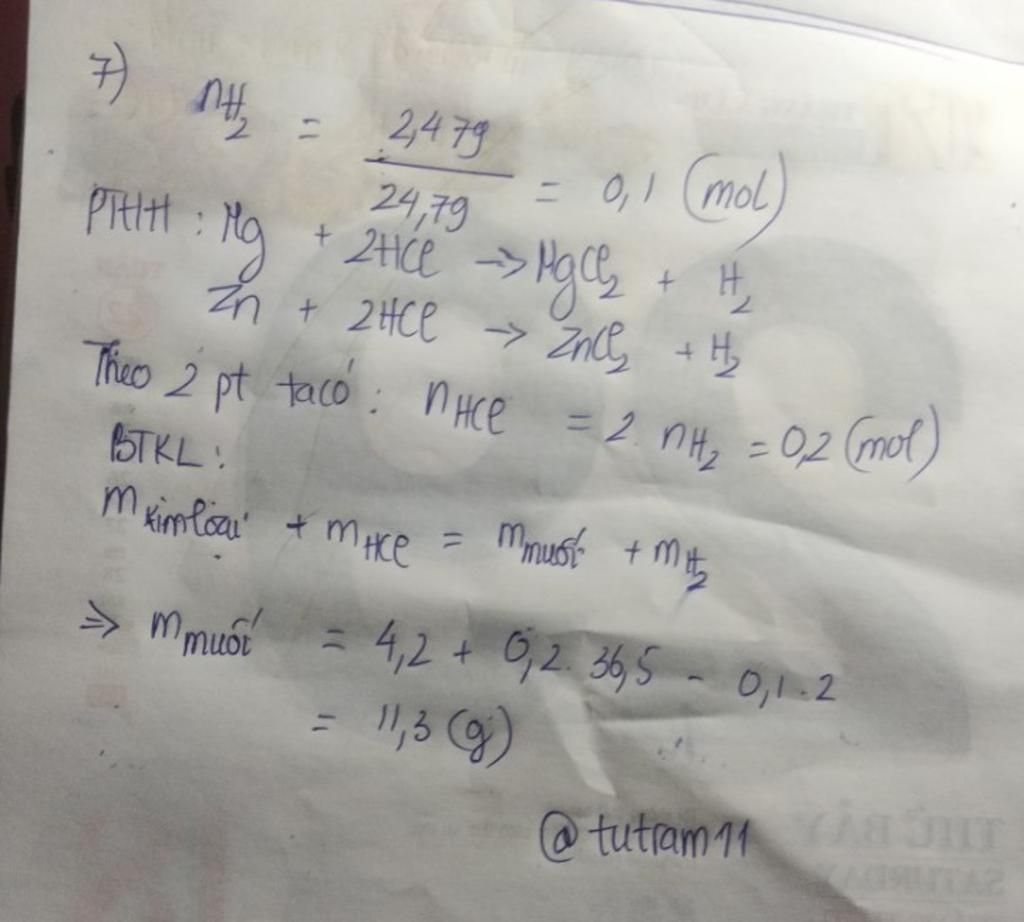 7) nH₂ = 2,479 / 24,79 = 0,1 (mol)
PTHH : Mg + 2HCl → MgCl₂ + H₂
Zn + 2HCl → ZnCl₂ + H₂
Theo 2 pt ta có : nHCl = 2. nH₂ = 0,2 (mol)
BTKL :
m kim loại + mHCl = m muối + mH₂
⇒ m muối = 4,2 + 0,2. 36,5 - 0,1. 2
= 11,3 (g)
@tutram11
THỨ BẢY
SATURDAY